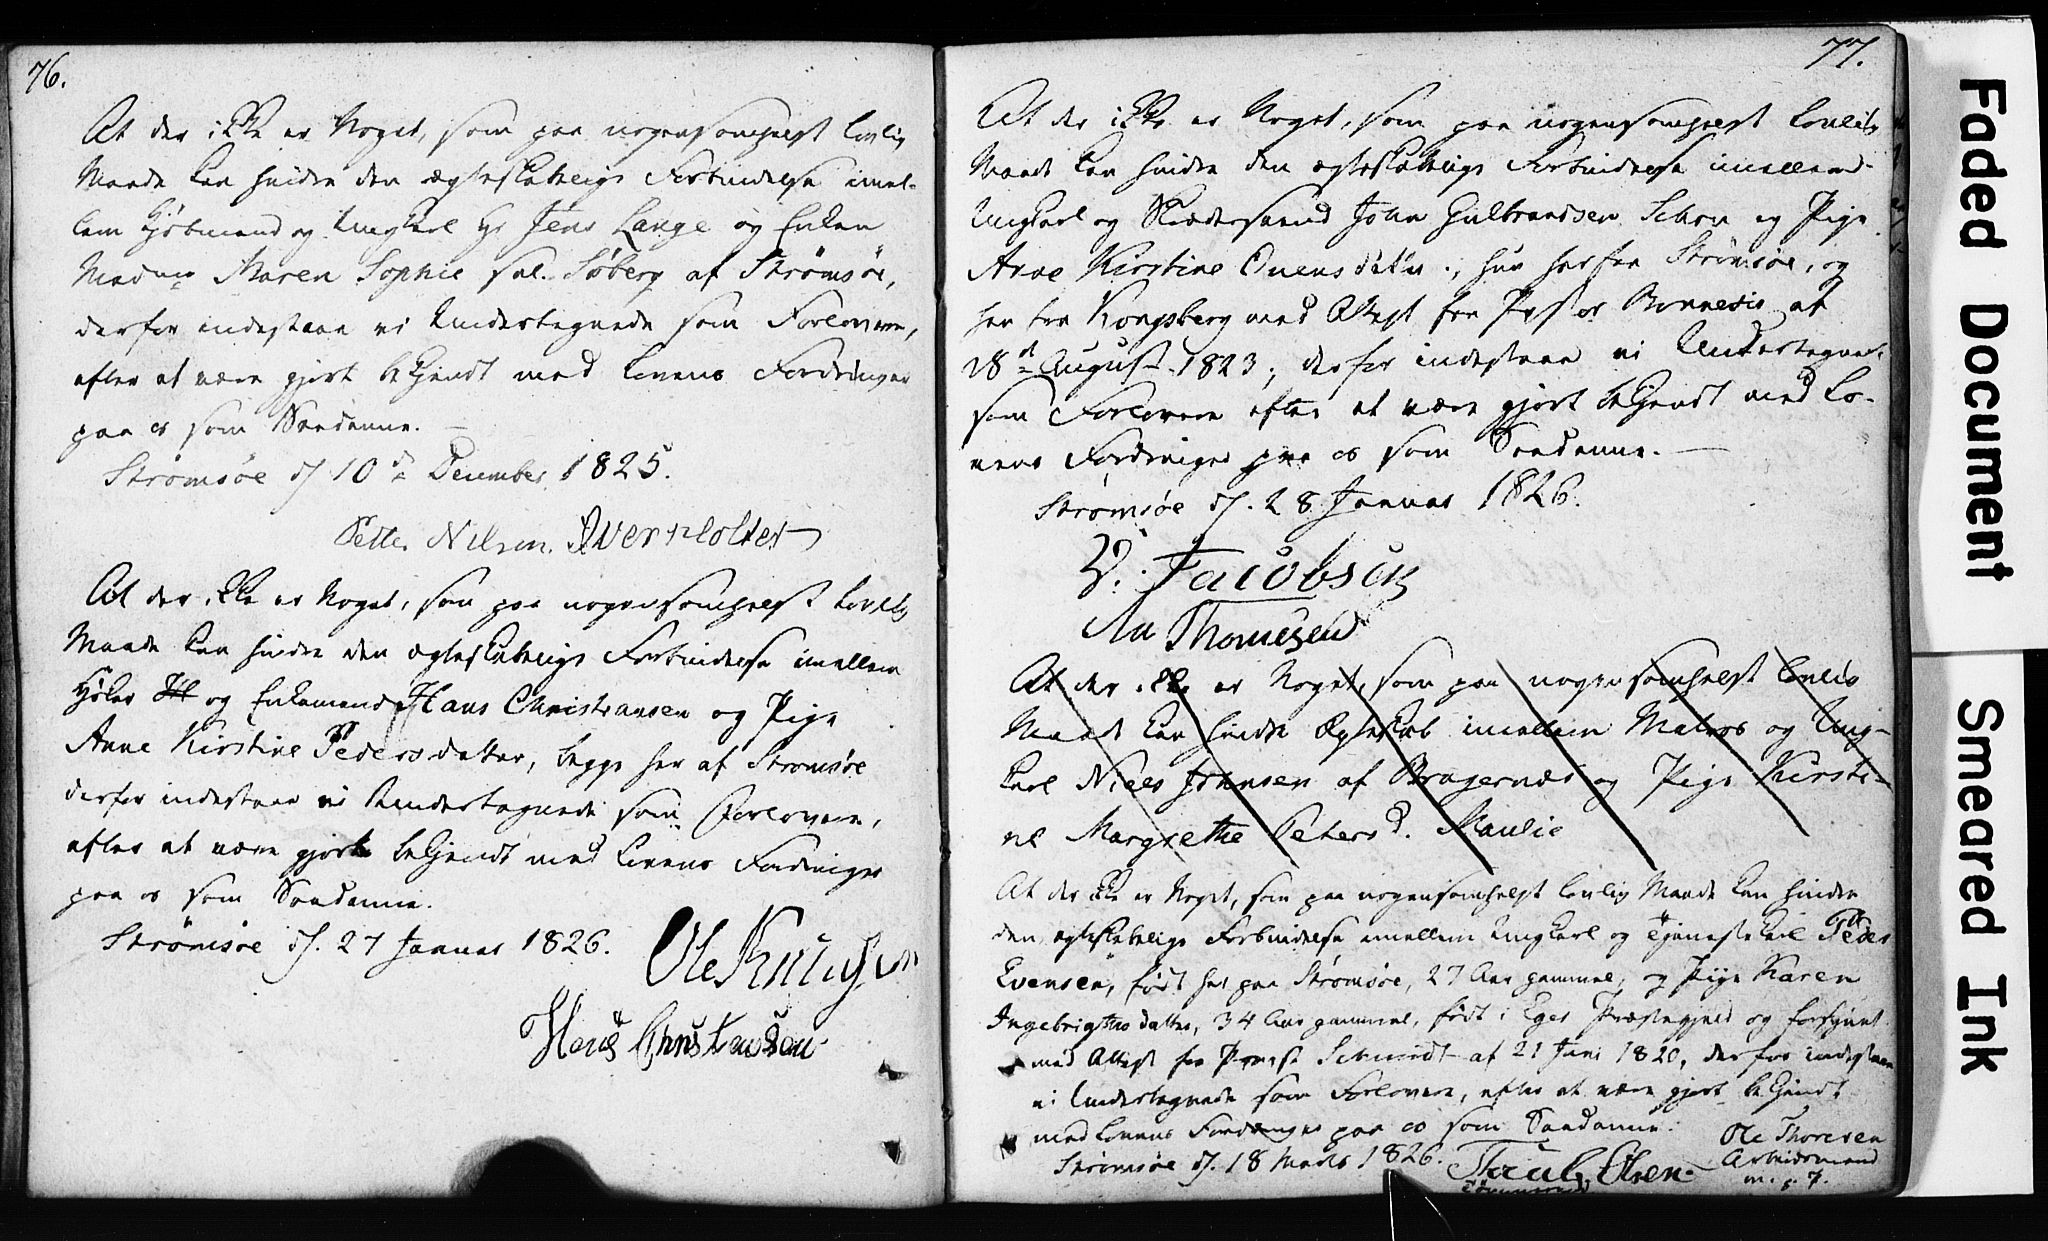 76.
At der ikke er Noget, som paa nogensomhelst lovlig
Maade kan hindre den ægteskabelige Forbindelse imel-
lem Kjøbmand og Ungkarl Hr Jens Lange og Enken
Madme Maren Sophie sal. Søberg af Strømsøe,
derfor indestaae vi Undertegnede som Forlovere,
efter at være gjort bekjendt med Lovens Fordringer
paa os som Saadanne. —
Strømsøe d/ 10d December 1825.
Petter Nilsen. Iver Holter
At der ikke er Noget, som paa nogensomhelst lovlig
Maade kan hindre den ægteskabelige Forbindelse imellem
Høker og Enkemand Hans Christiansen og Pige
Anne Kirstine Pedersdatter, begge her af Strømsøe
derfor indestaae vi Undertegnede som Forlovere,
efter at være gjort bekjendt med Lovens Fordringer
paa os som Saadanne.
Strømsøe d/. 27 Januar 1826.
Ole Knudsen
Hans Christensen
77.
At der ikke er Noget, som paa nogensomhelst lovlig
Maade kan hindre den ægteskabelige Forbindelse imellem
Ungkarl og Skrædersvend John Gulbrandsen Schou og Pige
Anne Kirstine Ouensdatter, hun her fra Strømsøe, og
han fra Kongsberg med Attest fra Pastor af
28d August 1823; derfor indestaae vi Undertegnede
som Forlovere efter at være gjort bekjendt med Lo-
vens Fordringer paa os som Saadanne. —
Strømsøe d/. 28 Januar 1826.
Jacobsen
An Thomesen
At der ikke er Noget, som paa nogensomhelst lovlig
Maade kan hindre Ægteskab imellem Matros og Ung-
karl Niels Johnsen af Bragernæs og Pige Kirsti-
ne Margrethe Petersd. Maulie
At der ikke er Noget, som paa nogensomhelst lovlig Maade kan hindre
den ægteskabelige Forbindelse imellem Ungkarl og Tjenestekarl Peder
Evensen, født her paa Strømsøe, 27 Aar gammel, og Pige Karen
Ingebrigtsdatter, 34 Aar gammel, født i Eger Præstegjeld og forsynet
med Attest fra Provst Schmidt af 21 Juni 1820, derfor indestaae
vi Undertegnede som Forlovere, efter at være gjort bekjendt
med Lovens Fordringer paa os som Saadanne.
Strømsøe d/. 18 Marts 1826.
Truls Olsen
Ole Thoresen
Arbeidsmand
m. p. P.
Faded Document
Smeared Ink